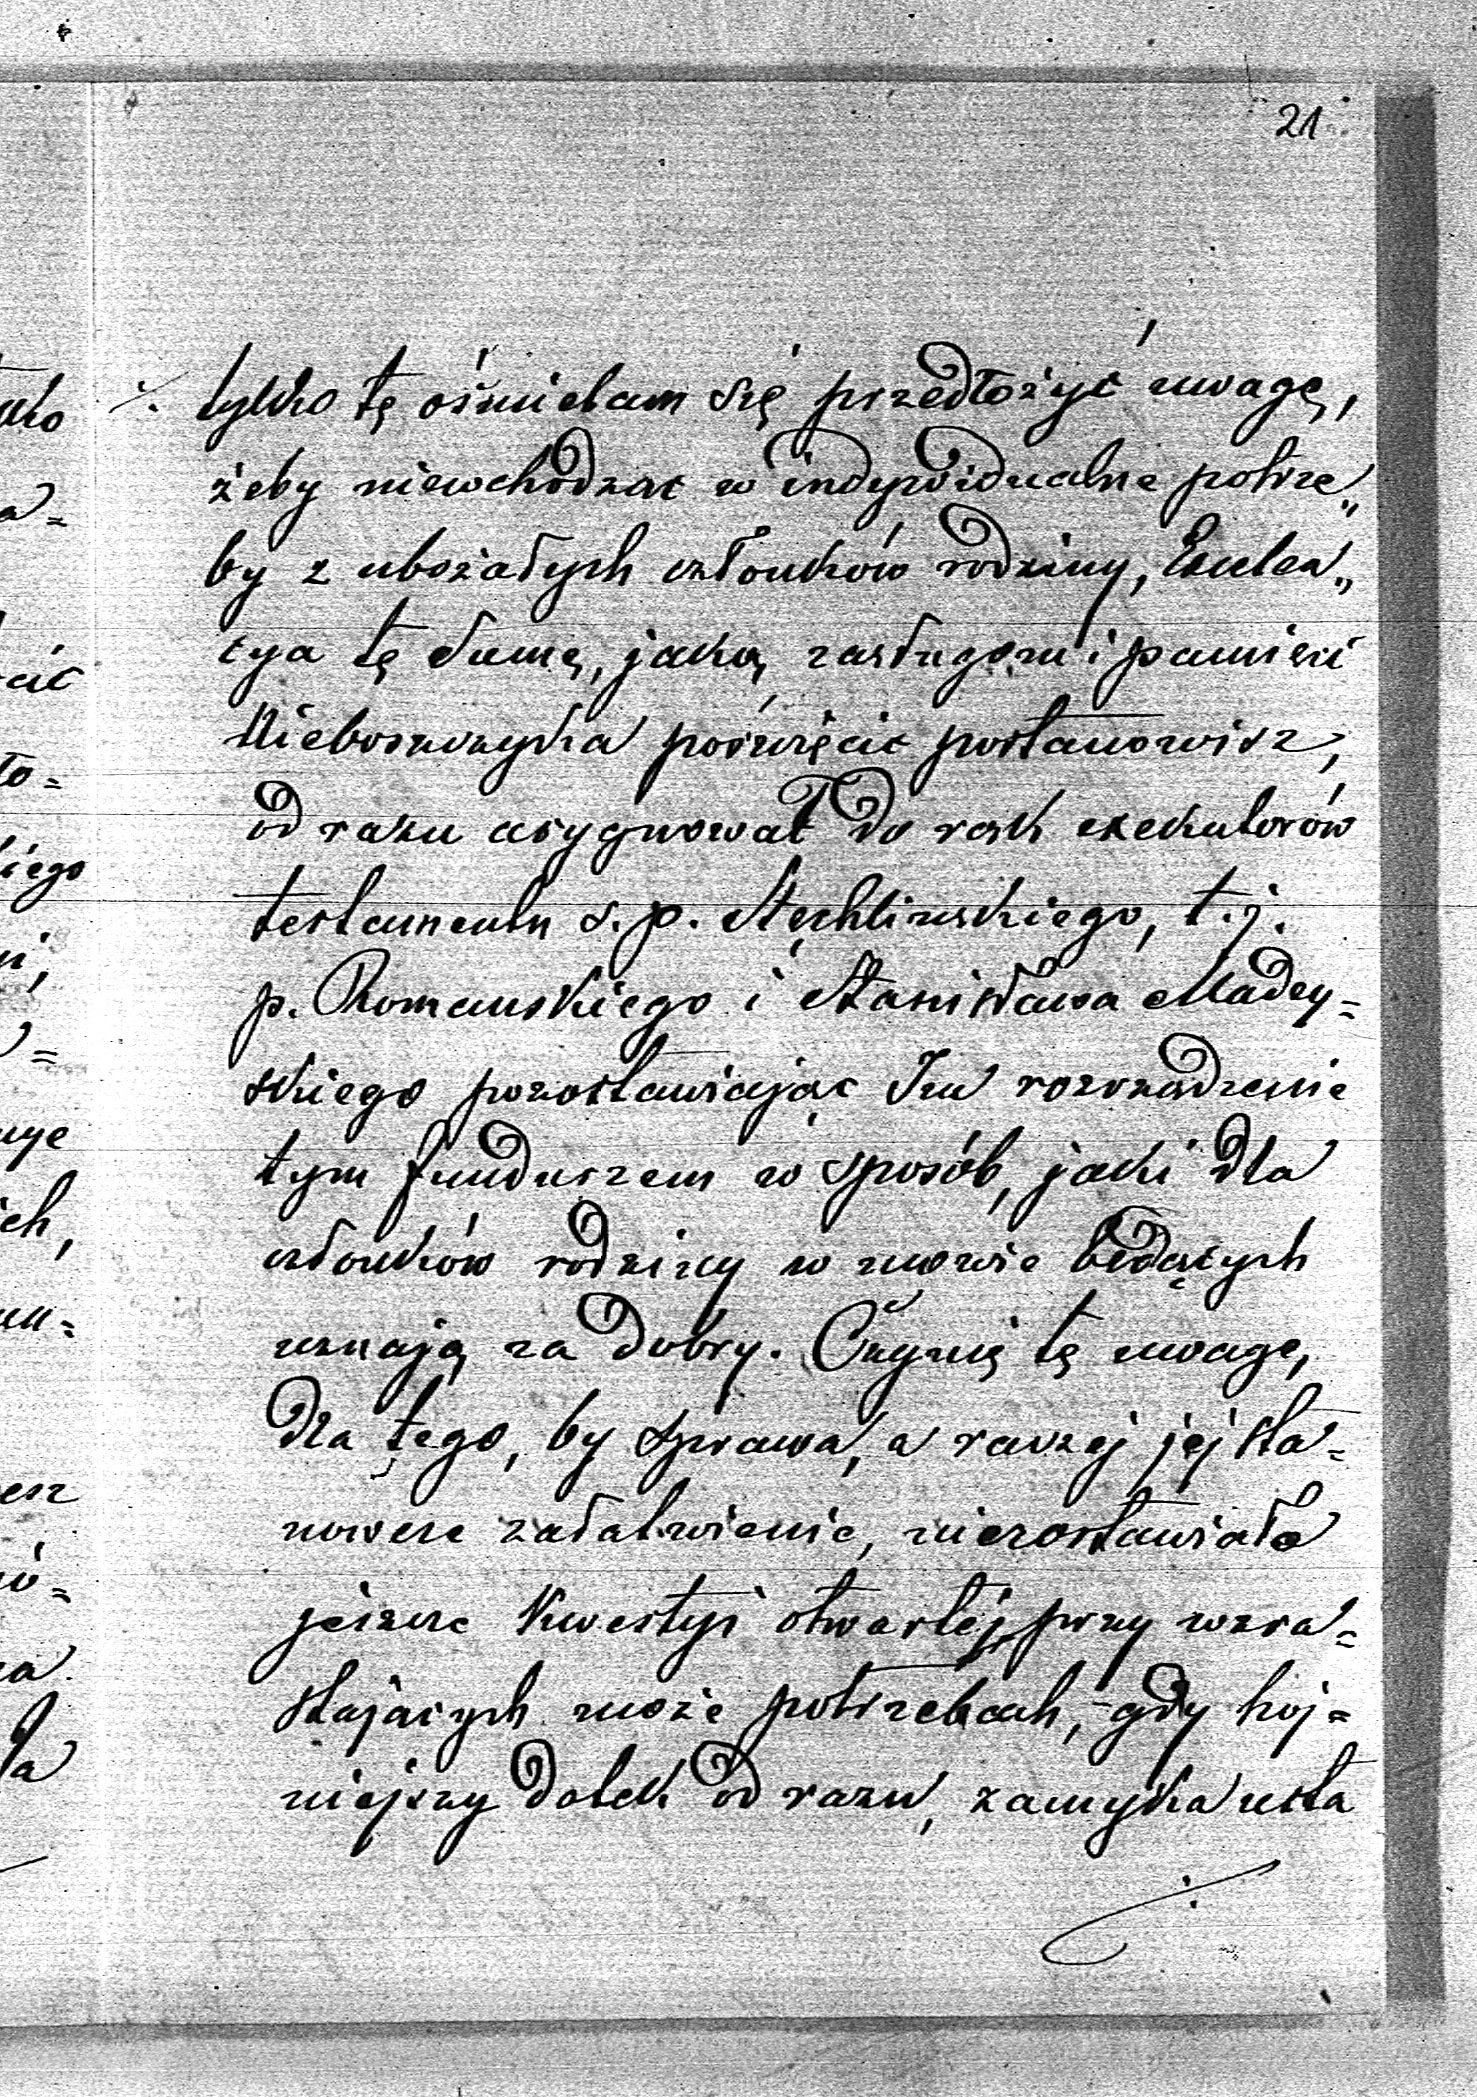 21
./. tylko tę ośmielam się przedłożyć uwagę,
żeby niewchodząc w indywidualne potrze„
by zubożałych członków rodziny, Excelen„
cya tę sumę, jaką zasługom i pamięci
Nieboszczyka poświęcić postanowisz,
od razu asygnował do rąk exekutorów
testamentu s. p. Stechlińskiego, t. j.
p. Romanskiego i Stanisława Madey=
skiego pozostawiając Im rozrządzenie
tym funduszem w sposób, jaki dla
członków rodziny w mowie będących
uznają za dobry. Czynię tę uwagę,
dla tego, by sprawa, a raczej jej sta=
nowcze załatwienie, niezostawiało
jeszcze kwestyi otwartéj, przy wzra=
stających może potrzebach, - gdy hoj=
niejszy datek od razu, zamyka usta
./.